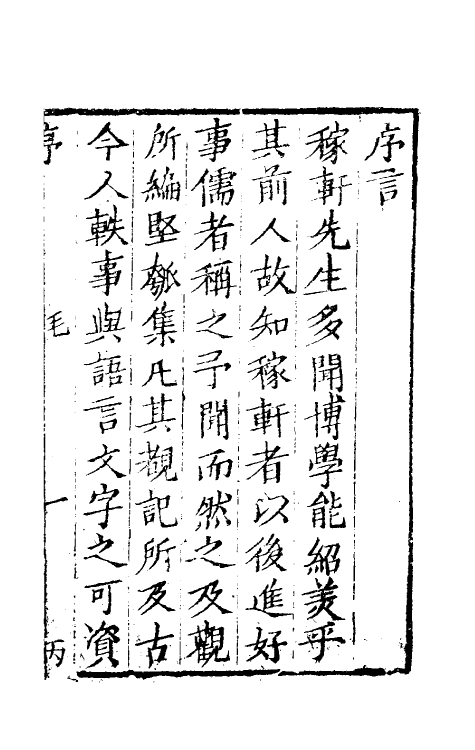 序言
稼軒先生多聞博學能紹美乎
其前人故知稼軒者以後進好
事儒者稱之予聞而然之及觀
所編堅瓠集凡其覩記所及古
今人軼事與語言文字之可資
序 毛 一 丙